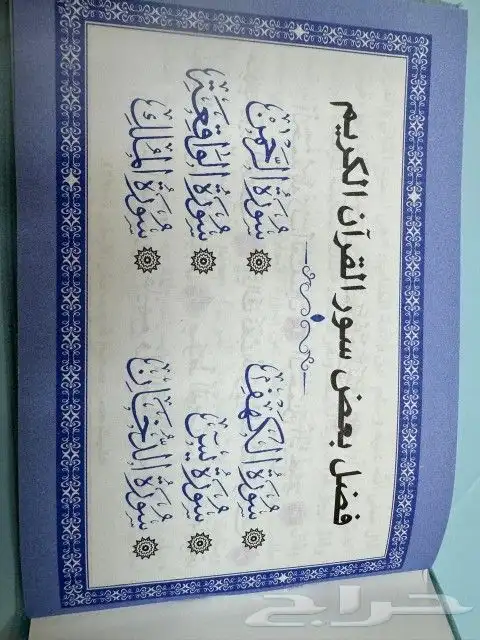 فضل بعض سور القرآن الكريم
سُورَةُ الكَهْفِ
سُورَةُ يسٓ
سُورَةُ الدُّخَانِ
سُورَةُ الرَّحْمٰنِ
سُورَةُ الوَاقِعَةِ
سُورَةُ المُلْكِ
حراج